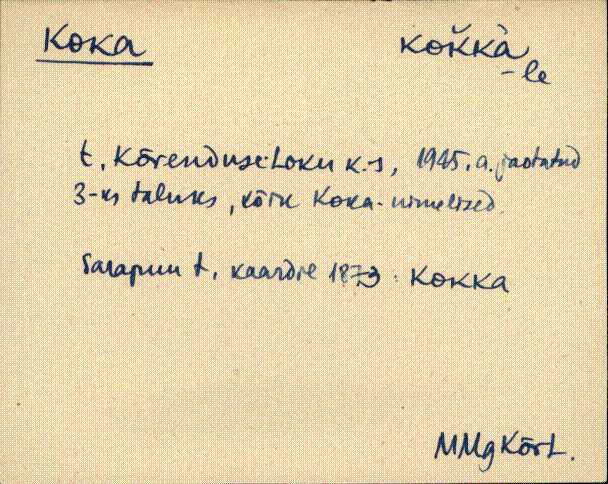 Koka kok̆kà
-le
t. Kõrenduse-Loku k.-s, 1945. a. jaotatud
3-ks taluks, kõik Koka-nimelised.
Sarapuu t. kaardil 1873. Kokka
MMg KõrL.